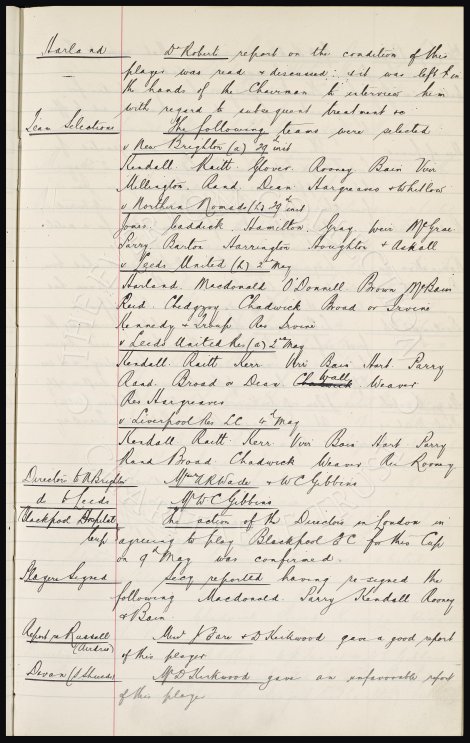 Harland Dr Robert report on the condition of this
player was read & discussed: & it was left in
the hands of the Chairman to interview him
with regard to subsequent treatment &c
Team Selections The following teams were selected
v New Brighton (a) 29th inst
Kendall Raitt Glover Rooney Bain Virr
Millington Rand Dean Hargreaves & Whitlow
v Northern Nomads (h) 29th inst
Jones Caddick Hamilton Gray Weir McGrae
Parry Barton Harrington Houghton &
v Leeds United (h) 2nd May
Harland Macdonald O'Donnell Brown McBain
Reid Chedgzoy Chadwick Broad or Irvine
Kennedy & Troup Res Irvine
v Leeds United Res (a) 2nd May
Kendall Raitt Kerr Virr Bain Hart Parry
Rand Broad or Dean Chadwick Wall Weaver
Res Hargreaves
v Liverpool Res LC 4th May
Kendall Raitt Kerr Virr Bain Hart Parry
Rand Broad Chadwick Weaver Res Rooney
Director to N Brighton Messrs & W C Gibbins
do to Leeds Mr W C Gibbins
Blackpool Hospital The action of the Directors in London in
Cup agreeing to play Blackpool F C for this Cup
on 9th May was confirmed.
Players Signed Secy reported having re-signed the
following Macdonald Parry Kendall Rooney
& Bain
Report re Russell Messrs & D Kirkwood gave a good report
(Airdrie) of this player
Devan Mr D Kirkwood gave an unfavorable report
of this player